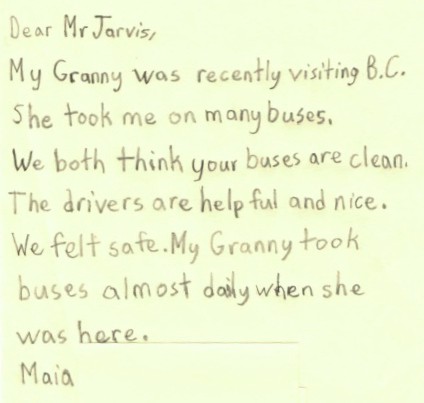 Dear Mr Jarvis,
My Granny was recently visiting B.C.
She took me on many buses.
We both think your buses are clean.
The drivers are helpful and nice.
We felt safe. My Granny took
buses almost daily when she
was here.
Maia